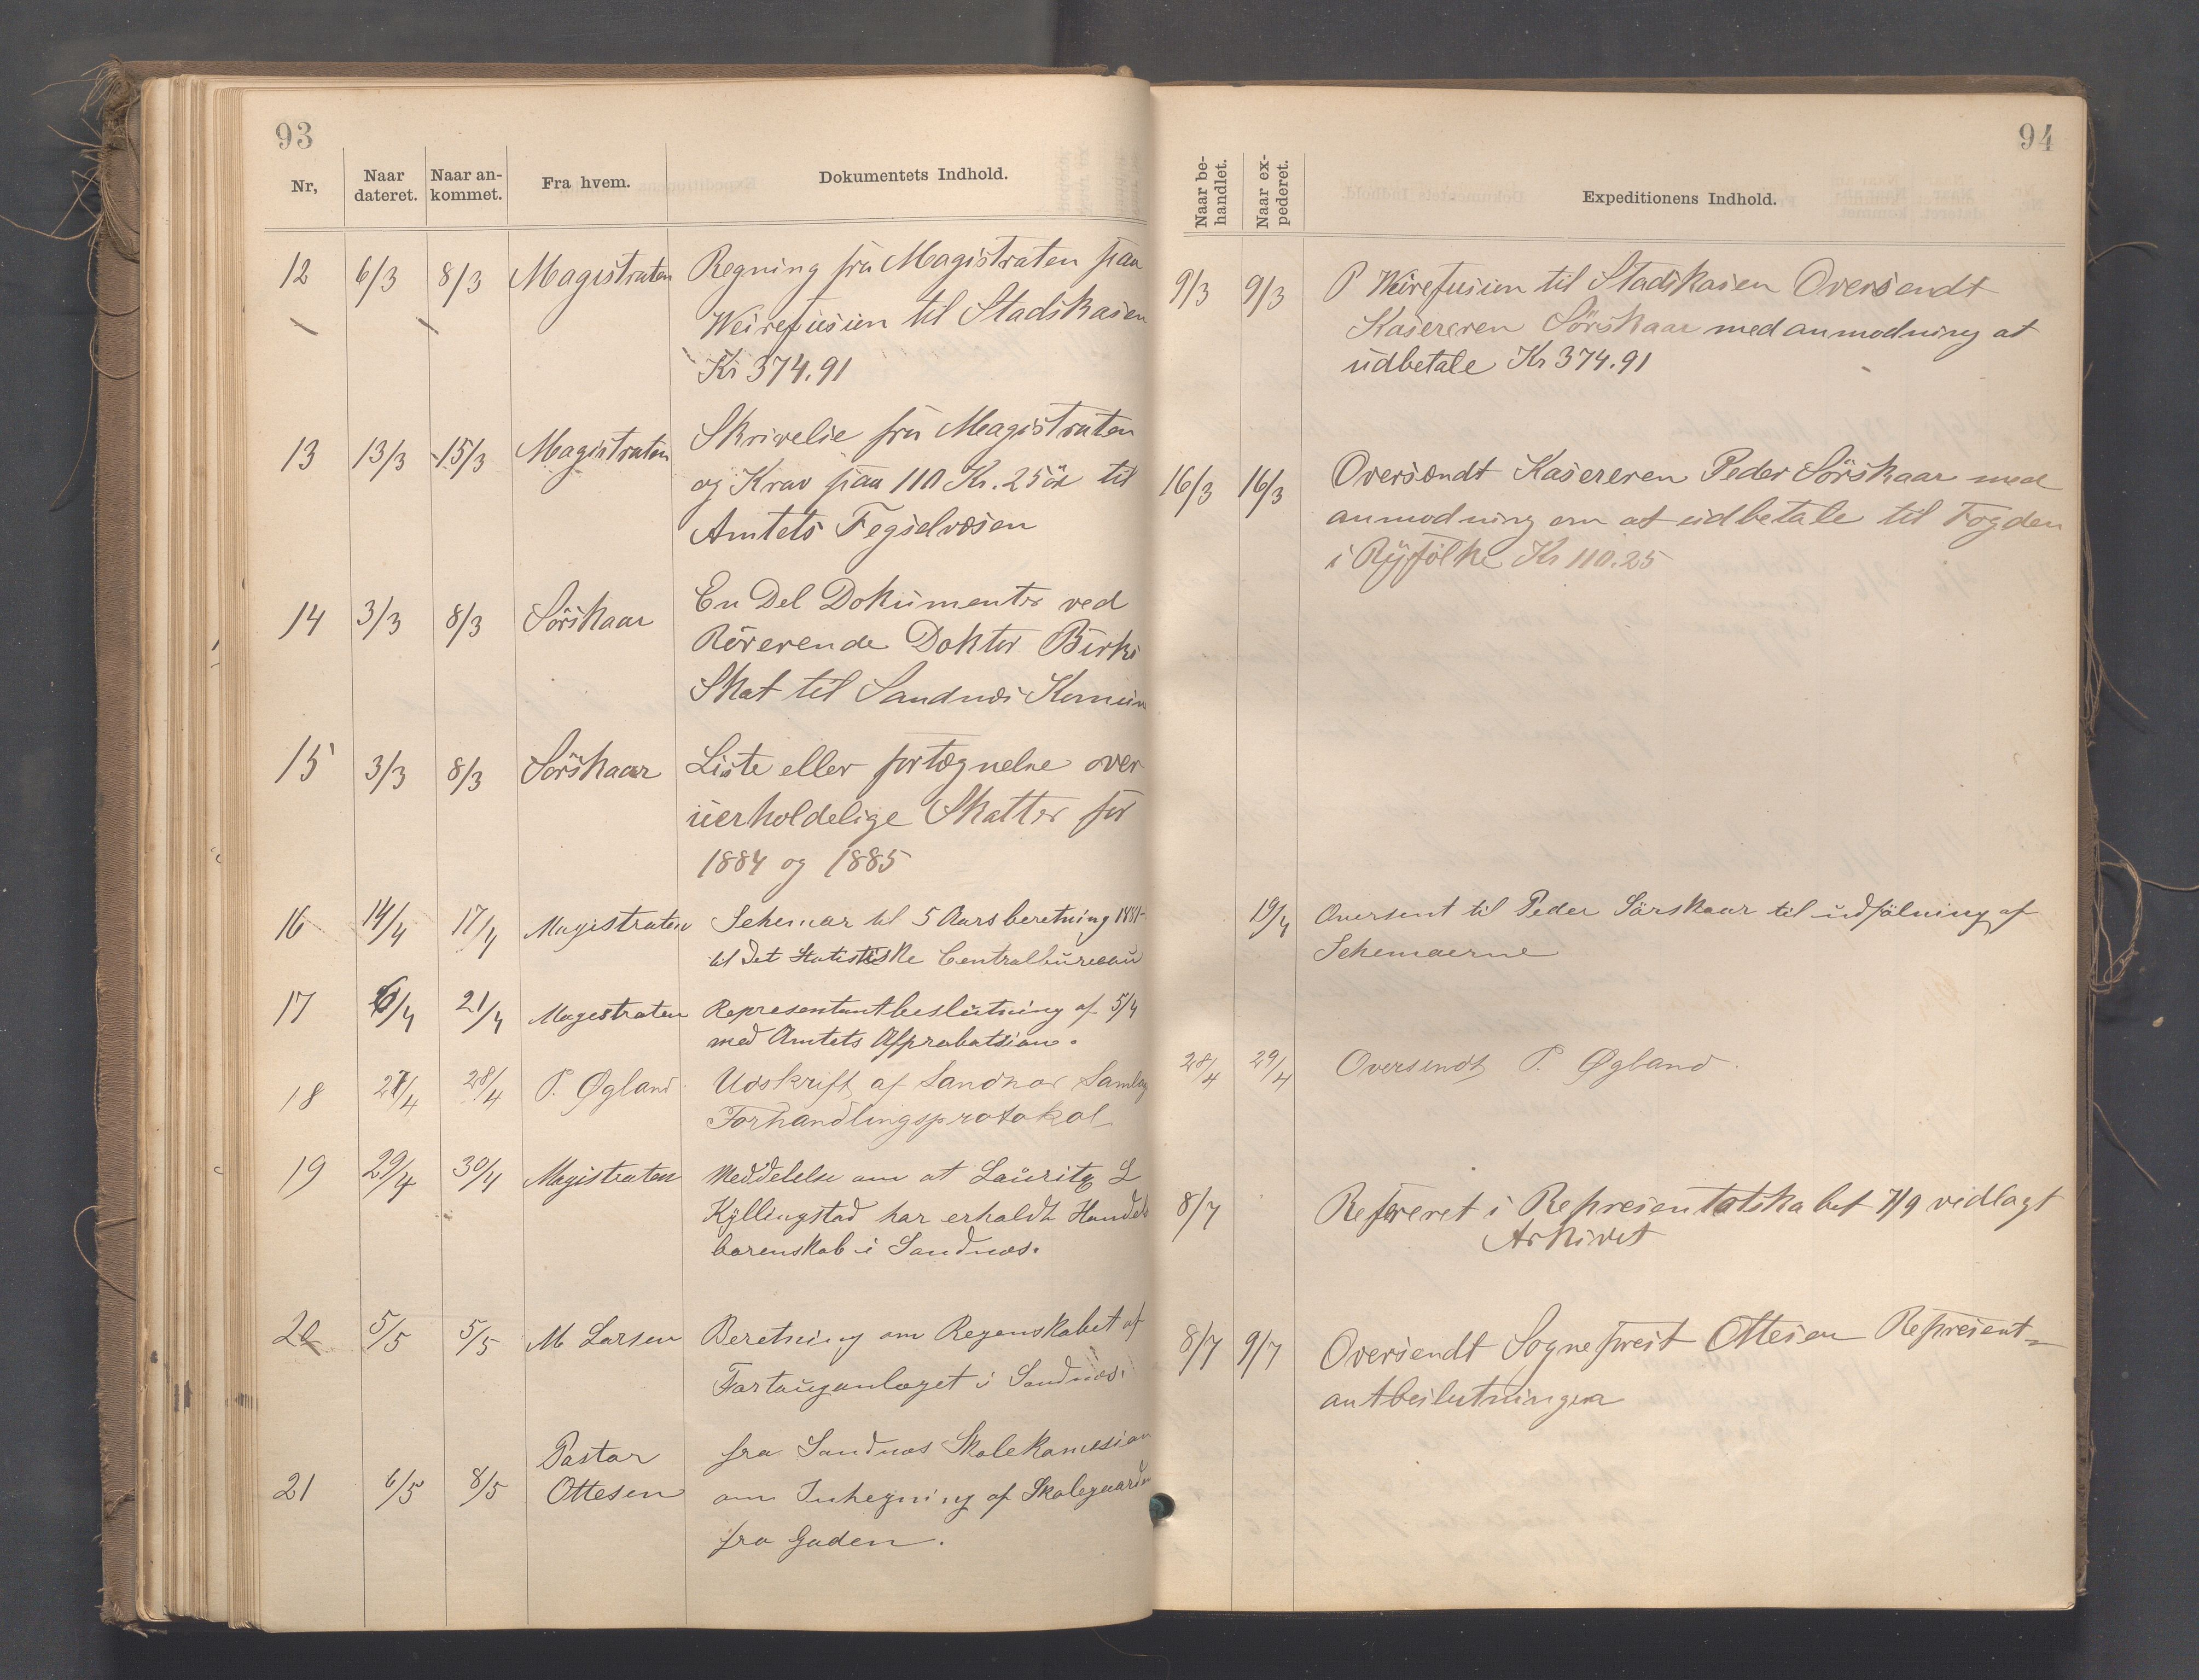 93
Nr, Naar dateret. Naar an-kommet. Fra hvem. Dokumentets Indhold.
12 6/3 8/3 Magistraten Regning fra Magistraten paa
Weirefusion til Stadskasen
Kr 374.91
13 13/3 15/3 Magistraten Skrivelse fra Magistraten
og Krav paa 110 Kr. 25 öre til
Amtets Fegselvæsen
14 3/3 8/3 Sörskaar En Del Dokumenter ved
Rörerende Doktor Birks
Skat til Sandnæs Komun
15 3/3 8/3 Sörskaar Liste eller fortegnelse over
uerholdelige Skatter for
1884 og 1885
16 14/4 17/4 Magistraten Schemar til 5 Aarsberetning
til Det Statistiske Centralbureau
17 6/4 21/4 Magistraten Representantbeslutning af 5/4
med Amtets Approbatsion.
18 27/4 28/4 P. Øgland Udskrift af Sandnæs Samlag
Forhandlingsprotokol
19 29/4 30/4 Magistraten Meddelelse om at Lauritz L
Kyllingstad har erholdt Handels
borenskab i Sandnæs.
20 5/5 5/5 M Larsen Beretning om Regenskabet af
Fartauganlæget i Sandnæs.
21 6/5 8/5 Pastor Ottesen fra Sandnæs Skolekomesion
om Inhegning af Skolegaarden
fra Gaden.
94
Naar be-handlet. Naar ex-pederet. Expeditionens Indhold.
9/3 9/3 P Weirefusion til Stadskasen Oversendt
Kasereren Sörskaar med anmodning at
udbetale Kr 374.91
16/3 16/3 Oversendt Kasereren Peder Sörskaar med
anmodning om at udbetale til Fogden
i Ryfölke Kr 110.25
19/4 Oversent til Peder Sörskaar til udfölning af
Schemaerne
28/4 29/4 Oversendt P. Øgland.
8/7 Refereret i Representatskabet 7/9 vedlagt
Arkivet
8/7 9/7 Oversendt Sogneprest Ottesen Represent-
antbeslutningen